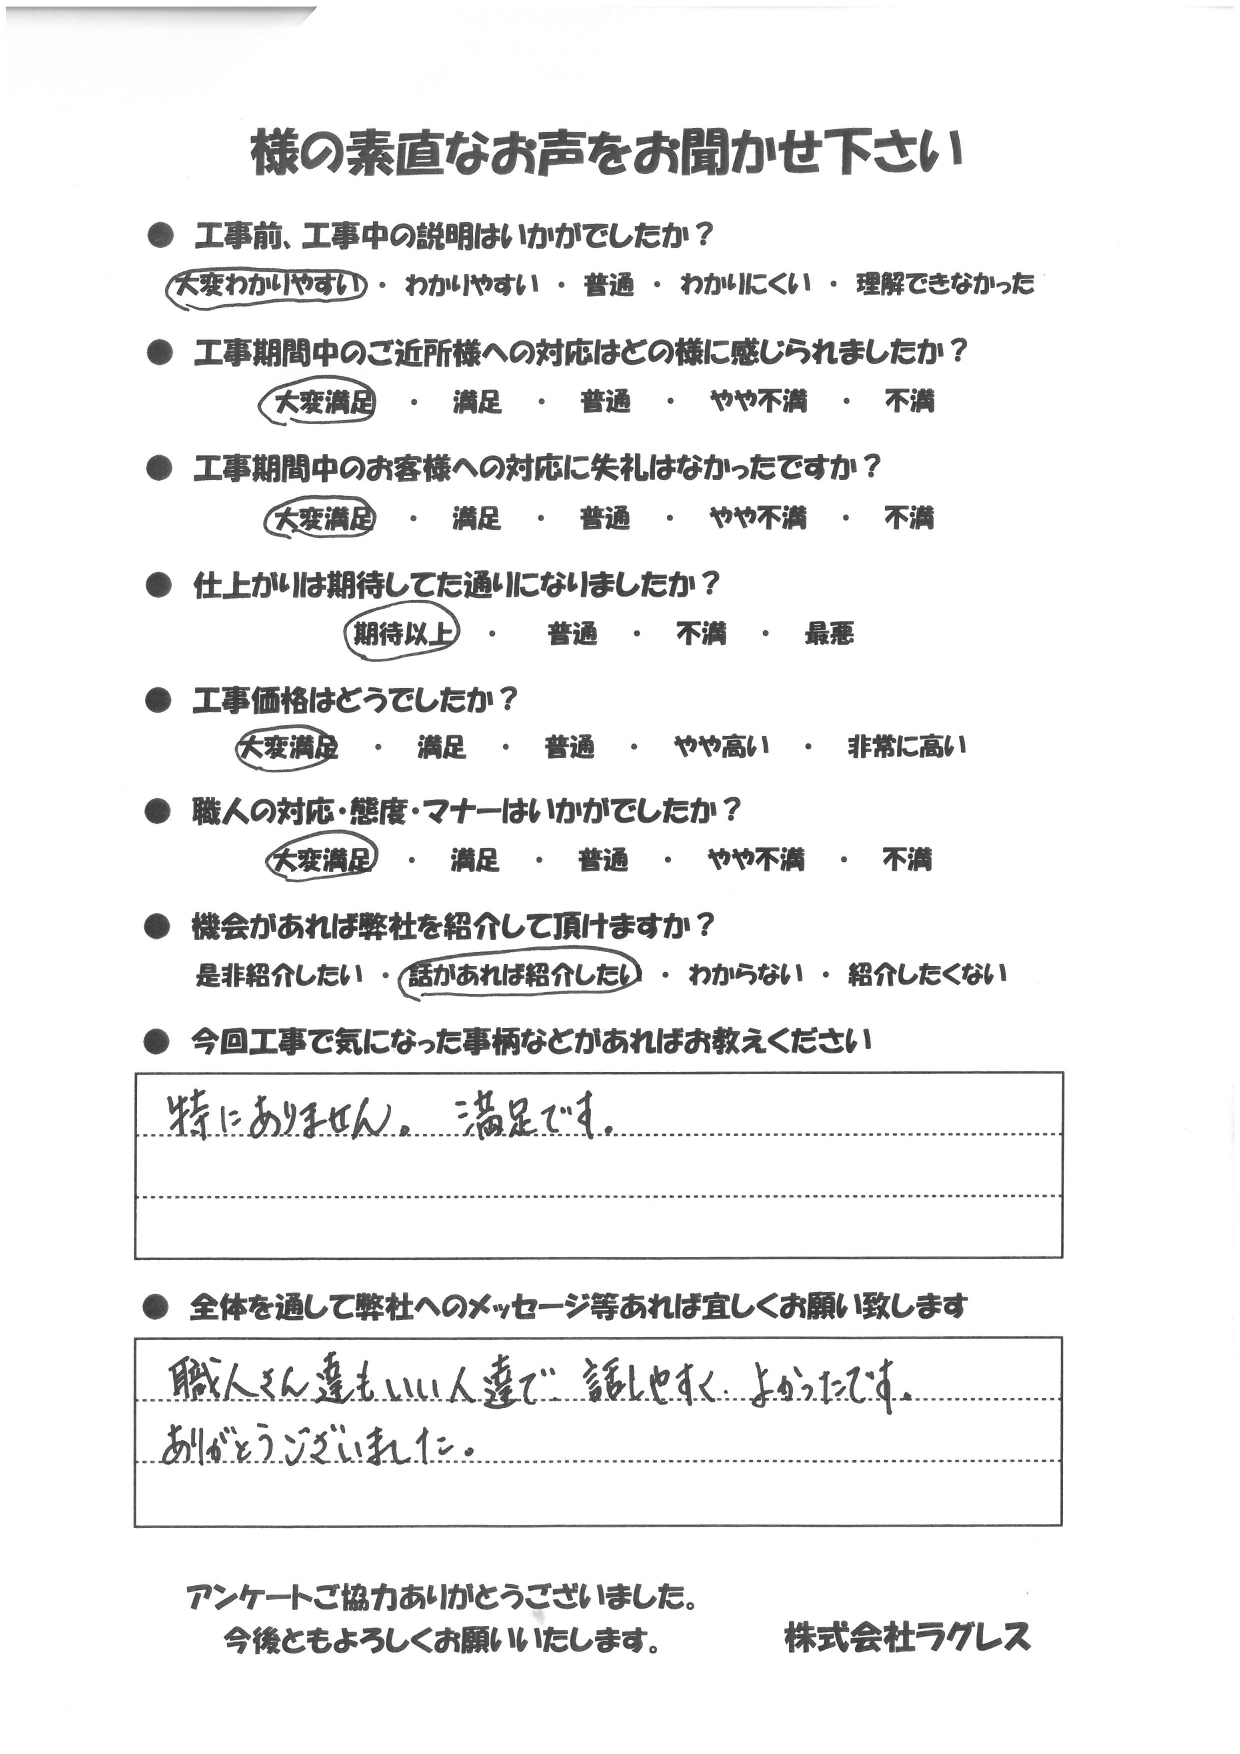 様の素直なお声をお聞かせ下さい
● 工事前、工事中の説明はいかがでしたか？
大変わかりやすい ・ わかりやすい ・ 普通 ・ わかりにくい ・ 理解できなかった
● 工事期間中のご近所様への対応はどの様に感じられましたか？
大変満足 ・ 満足 ・ 普通 ・ やや不満 ・ 不満
● 工事期間中のお客様への対応に失礼はなかったですか？
大変満足 ・ 満足 ・ 普通 ・ やや不満 ・ 不満
● 仕上がりは期待してた通りになりましたか？
期待以上 ・ 普通 ・ 不満 ・ 最悪
● 工事価格はどうでしたか？
大変満足 ・ 満足 ・ 普通 ・ やや高い ・ 非常に高い
● 職人の対応・態度・マナーはいかがでしたか？
大変満足 ・ 満足 ・ 普通 ・ やや不満 ・ 不満
● 機会があれば弊社を紹介して頂けますか？
是非紹介したい ・ 話があれば紹介したい ・ わからない ・ 紹介したくない
● 今回工事で気になった事柄などがあればお教えください
特にありません。 満足です。
● 全体を通して弊社へのメッセージ等あれば宜しくお願い致します
職人さん達もいい人達で 話しやすく よかったです。
ありがとうございました。
アンケートご協力ありがとうございました。
今後ともよろしくお願いいたします。 株式会社ラグレス